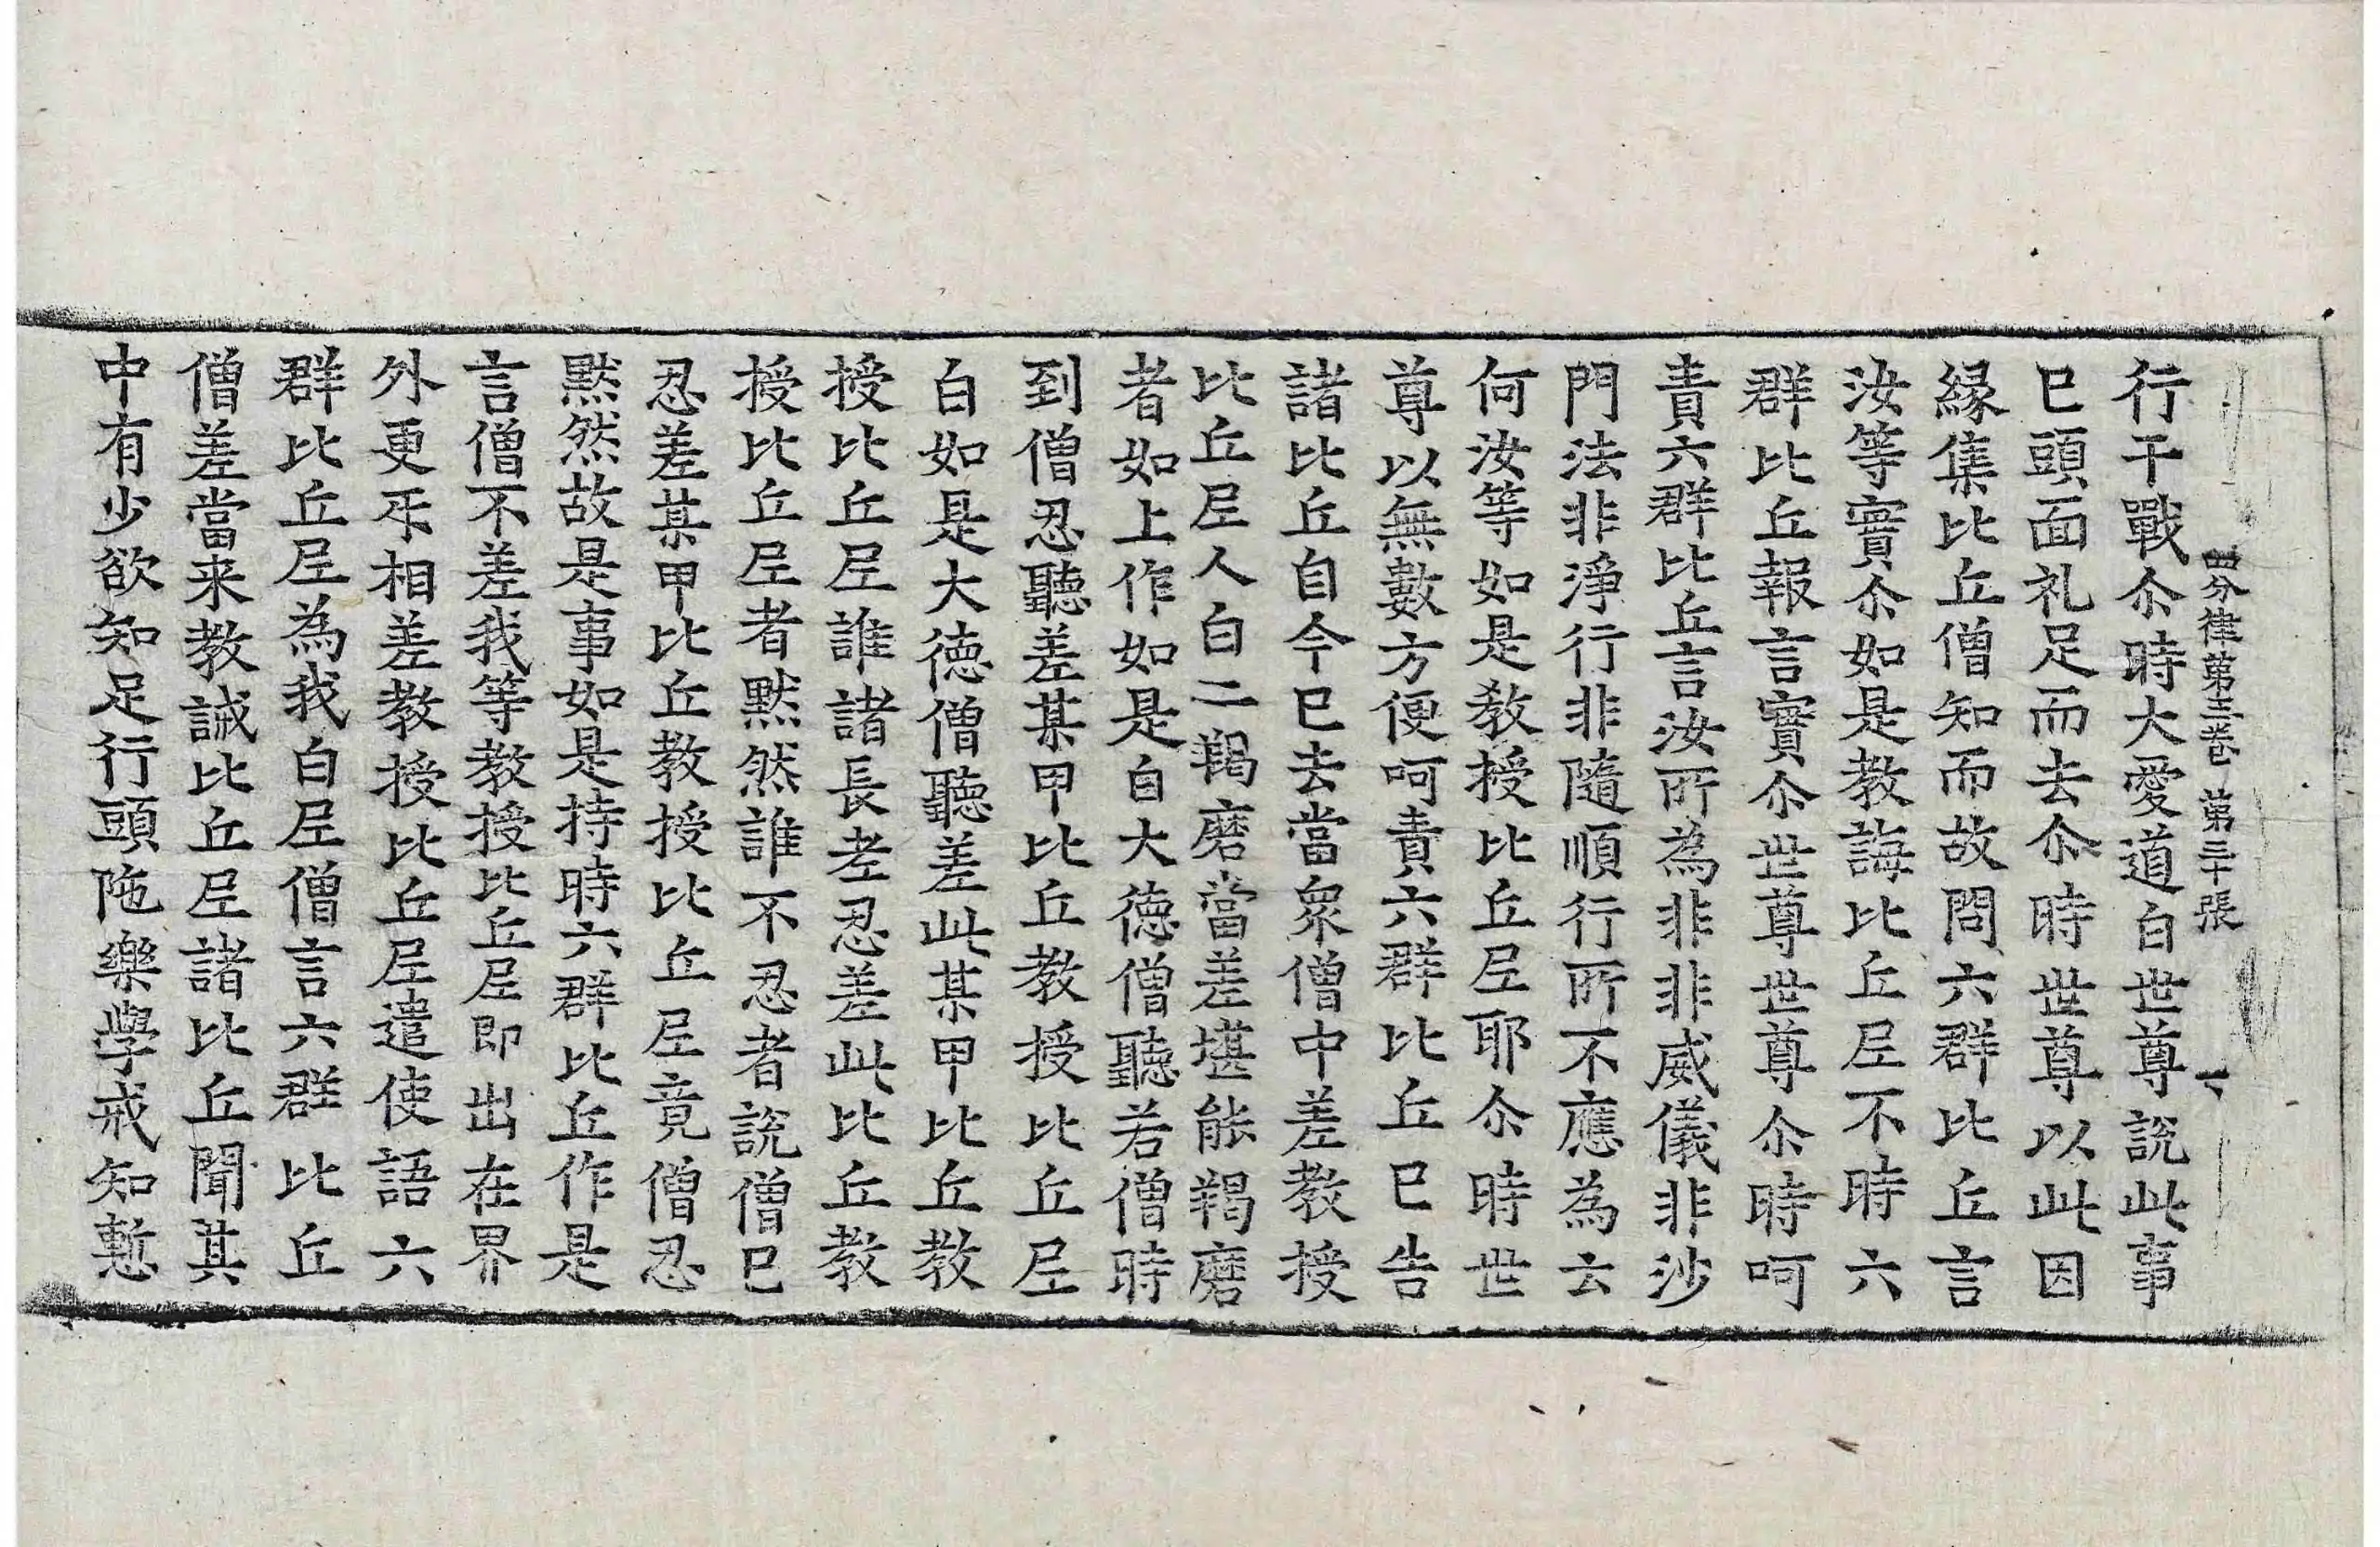 四分律第十二卷 第三十張
行干戰尒時大愛道白世尊說此事
已頭面礼足而去尒時世尊以此因
緣集比丘僧知而故問六群比丘言
汝等實尒如是教誨比丘尼不時六
群比丘報言實尒世尊世尊尒時呵
責六群比丘言汝所為非非威儀非沙
門法非淨行非隨順行所不應為云
何汝等如是教授比丘尼耶尒時世
尊以無數方便呵責六群比丘已告
諸比丘自今已去當衆僧中差教授
比丘尼人白二羯磨當差堪能羯磨
者如上作如是白大德僧聽若僧時
到僧忍聽差某甲比丘教授比丘尼
白如是大德僧聽差此某甲比丘教
授比丘尼誰諸長老忍差此比丘教
授比丘尼者默然誰不忍者說僧已
忍差某甲比丘教授比丘尼竟僧忍
默然故是事如是持時六群比丘作是
言僧不差我等教授比丘尼即出在界
外更互相差教授比丘尼遣使語六
群比丘尼為我白尼僧言六群比丘
僧差當来教誡比丘尼諸比丘聞其
中有少欲知足行頭陁樂學戒知慙